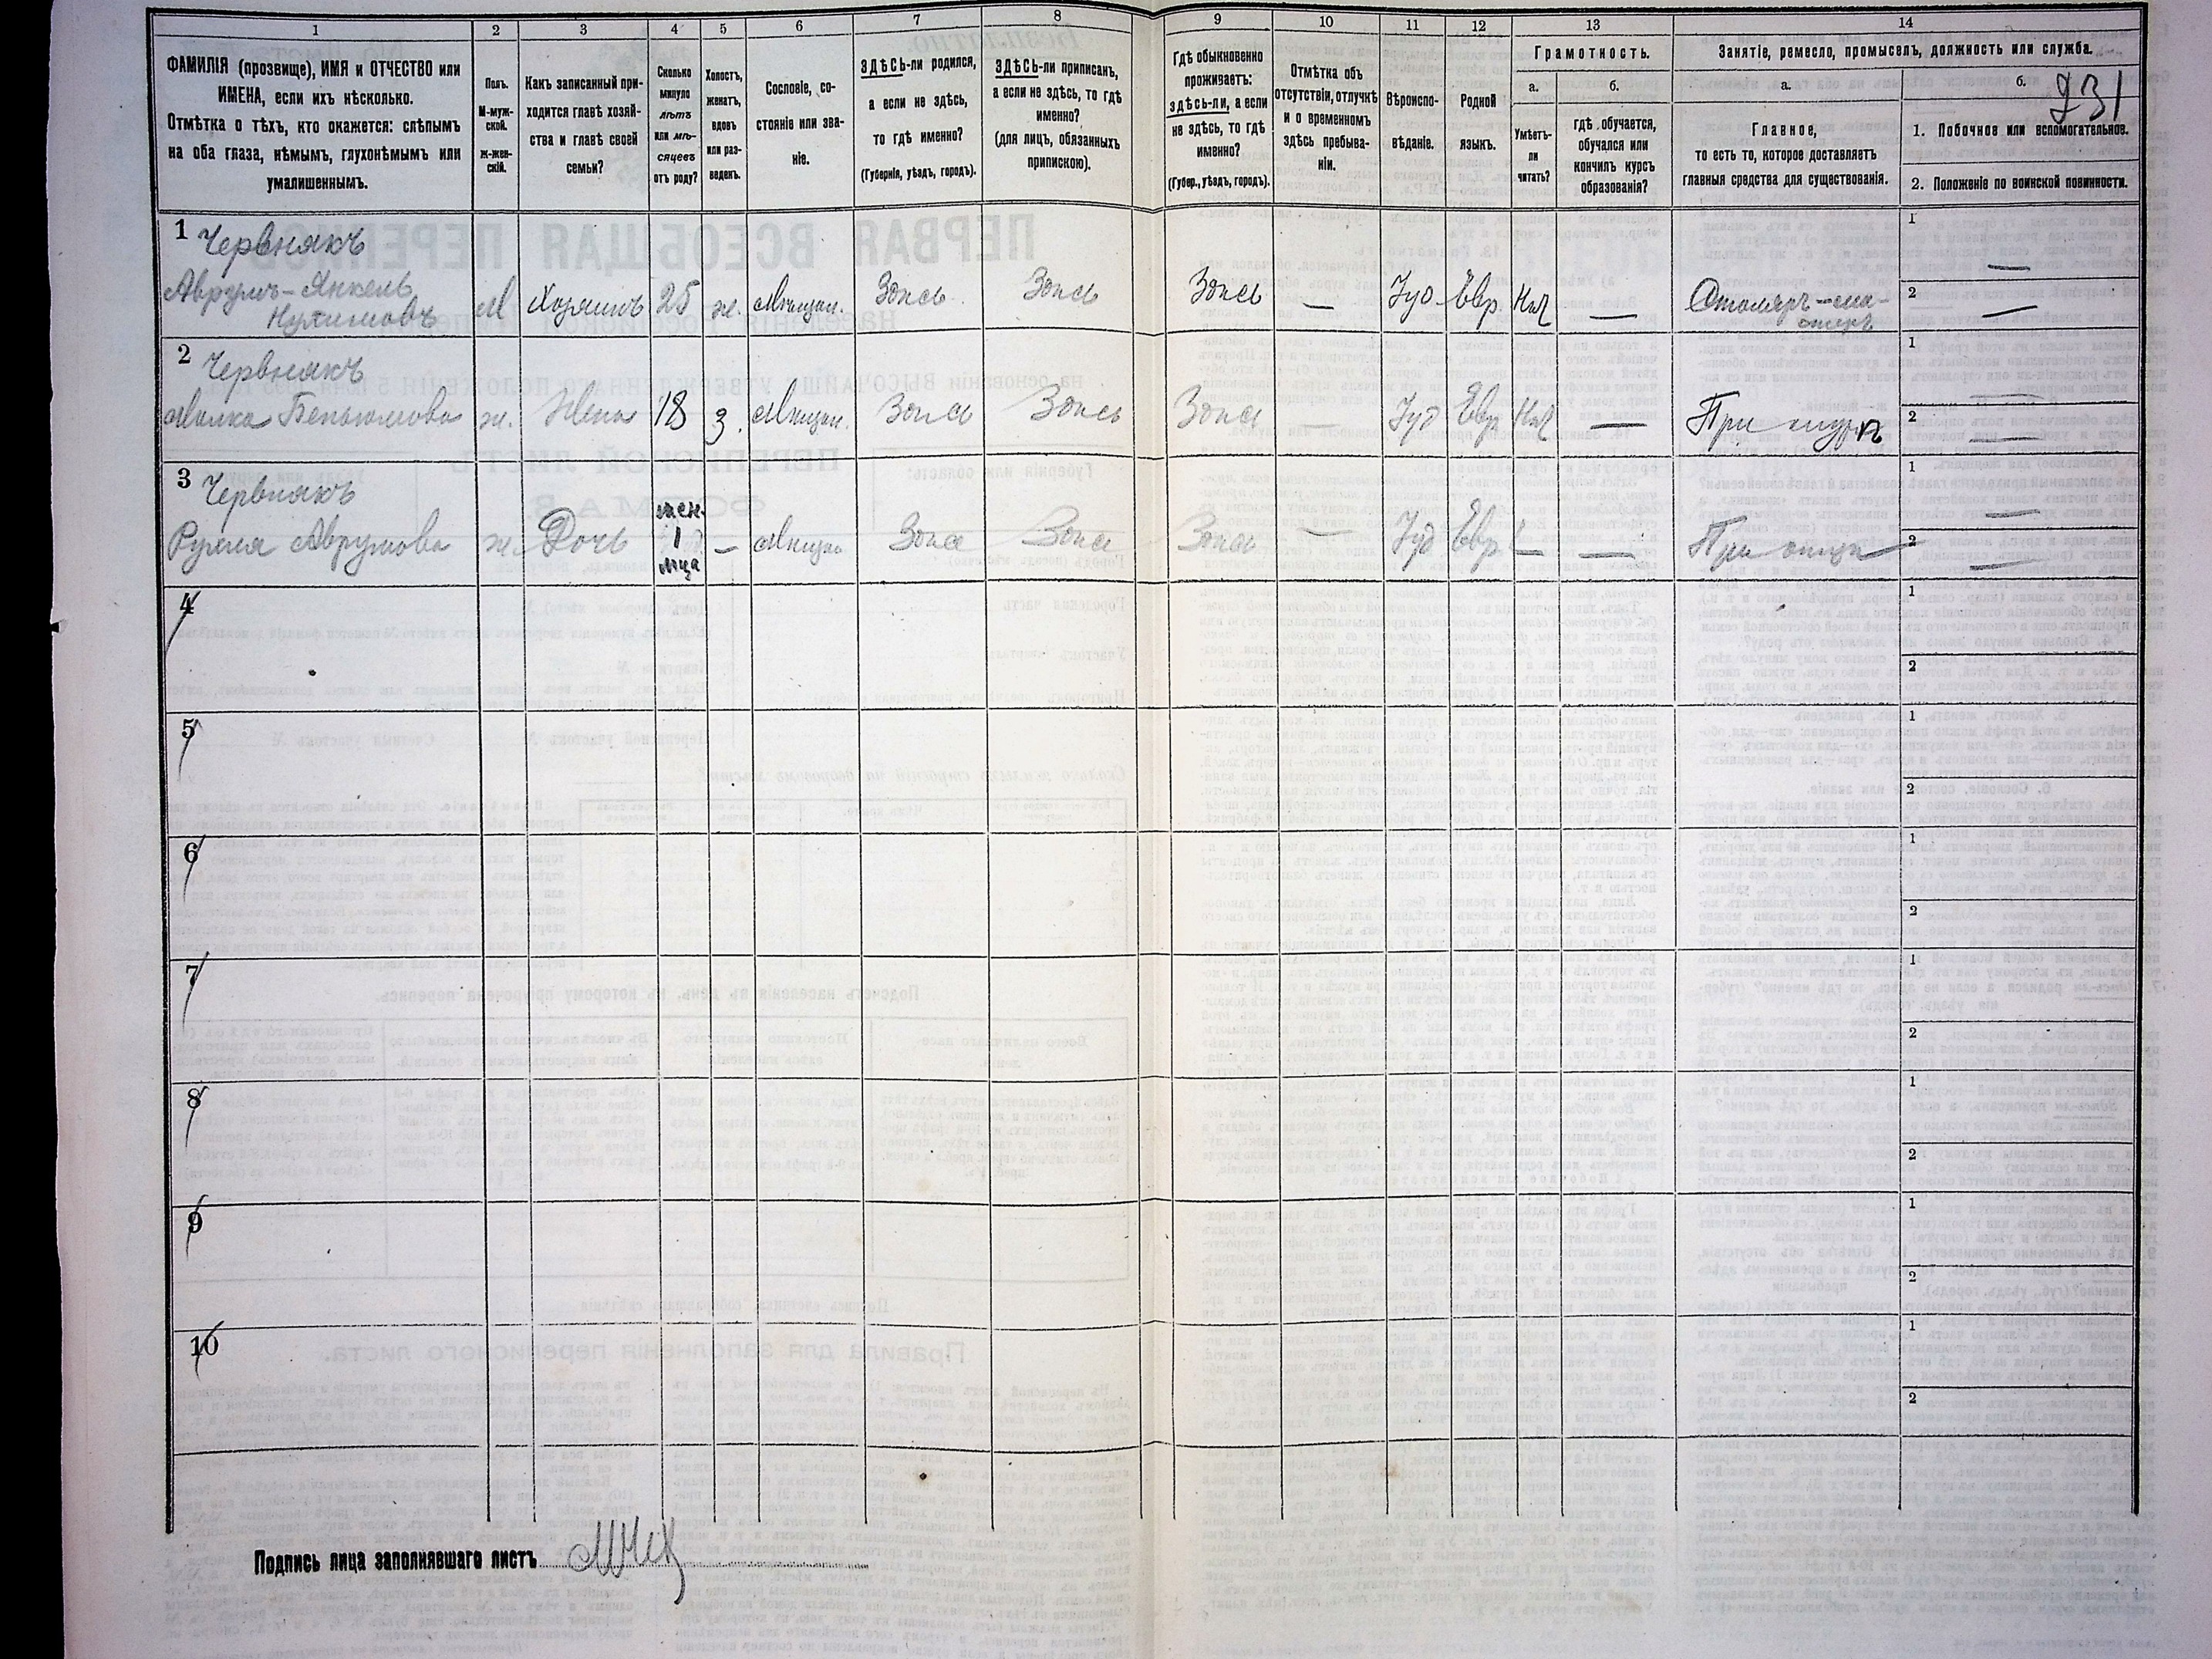 1 2 3 4 5 6 7 8 9 10 11 12 13 14
ФАМИЛІЯ (прозвище), ИМЯ и ОТЧЕСТВО или
ИМЕНА, если ихъ нѣсколько.
Отмѣтка о тѣхъ, кто окажется: слѣпымъ
на оба глаза, нѣмымъ, глухонѣмымъ или
умалишеннымъ.
Полъ.
М-муж-
ской.
Ж-жен-
скій.
Какъ записанный при-
ходится главѣ хозяй-
ства и главѣ своей
семьи?
Сколько
минуло
лѣтъ
или мѣ-
сяцевъ
отъ роду?
Холостъ,
женатъ,
вдовъ
или раз-
веденъ.
Сословіе, со-
стояніе или зва-
ніе.
ЗДѢСЬ-ли родился,
а если не здѣсь,
то гдѣ именно?
(Губернія, уѣздъ, городъ).
ЗДѢСЬ-ли приписанъ,
а если не здѣсь, то гдѣ
именно?
(для лицъ, обязанныхъ
припискою).
Гдѣ обыкновенно
проживаетъ:
здѣсь-ли, а если
не здѣсь, то гдѣ
именно?
(Губер., уѣздъ, городъ).
Отмѣтка объ
отсутствіи, отлучкѣ
и о временномъ
здѣсь пребыва-
ніи.
Вѣроиспо-
вѣданіе.
Родной
языкъ.
Грамотность.
а.
Умѣетъ-
ли
читать?
б.
гдѣ обучается,
обучался или
кончилъ курсъ
образованія?
Занятіе, ремесло, промыселъ, должность или служба.
а.
Главное,
то есть то, которое доставляетъ
главныя средства для существованія.
б. 231
1. Побочное или вспомогательное.
2. Положеніе по воинской повинности.
1 Червнякъ 1 —
Аврумъ-Янкель М Хозяинъ 25 ж. Мѣщан. Здѣсь Здѣсь Здѣсь — Іуд Евр. Нѣт — Столяръ-ма- 2 —
стеръ
2 Червнякъ 1 —
Малка Беньюмова ж. Жена 18 з. Мѣщан. Здѣсь Здѣсь Здѣсь — Іуд Евр Нѣт — При мужѣ 2 —
3 Червнякъ 1 —
мен.
Рухля Аврумова ж. Дочь 1 — Мѣщан Здѣсь Здѣсь Здѣсь — Іуд Евр — — При отцѣ 2 —
мца
4 1
2
5 1
2
6 1
2
7 1
2
8 1
2
9 1
2
10 1
2
Подпись лица заполнявшаго листъ